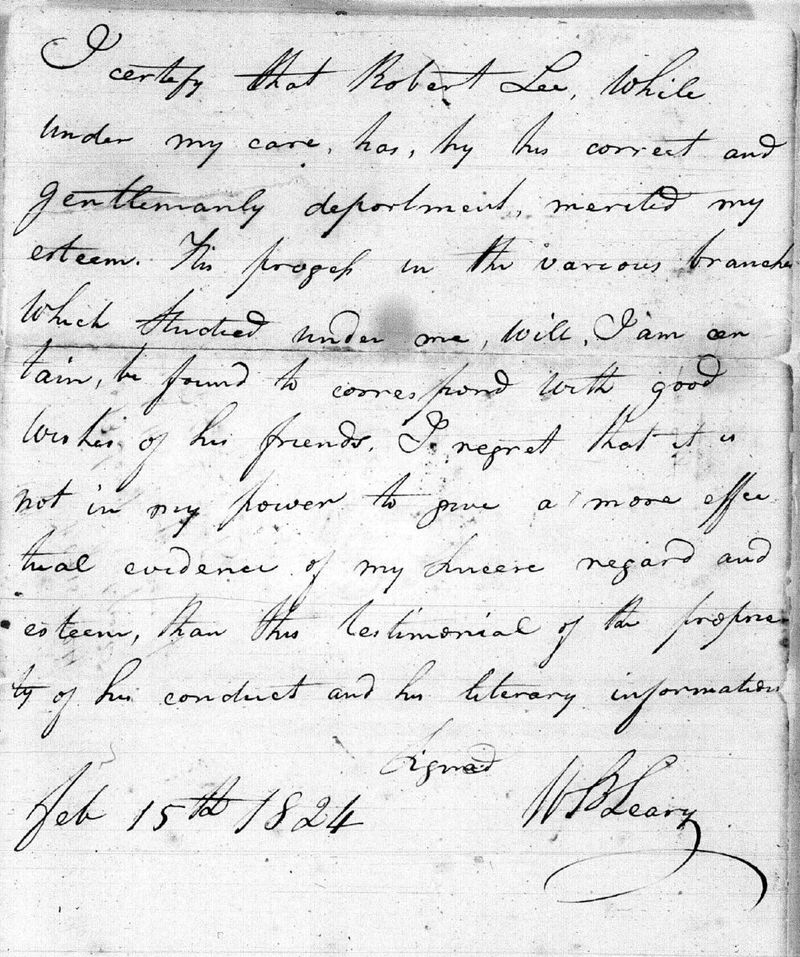 I certify that Robert Lee, While
under my care, has, by his correct and
gentlemanly deportment, merited my
esteem. His progess in the various branches
which studied under me, will, I am cer
tain, be found to correspond with good
wishes of his friends. I regret that it is
not in my power to give a more effec
tual evidence of my sincere regard and
esteem, than this testimonial of the proprie
ty of his conduct and his literary information
Signed
Feb 15th 1824 W B Leary